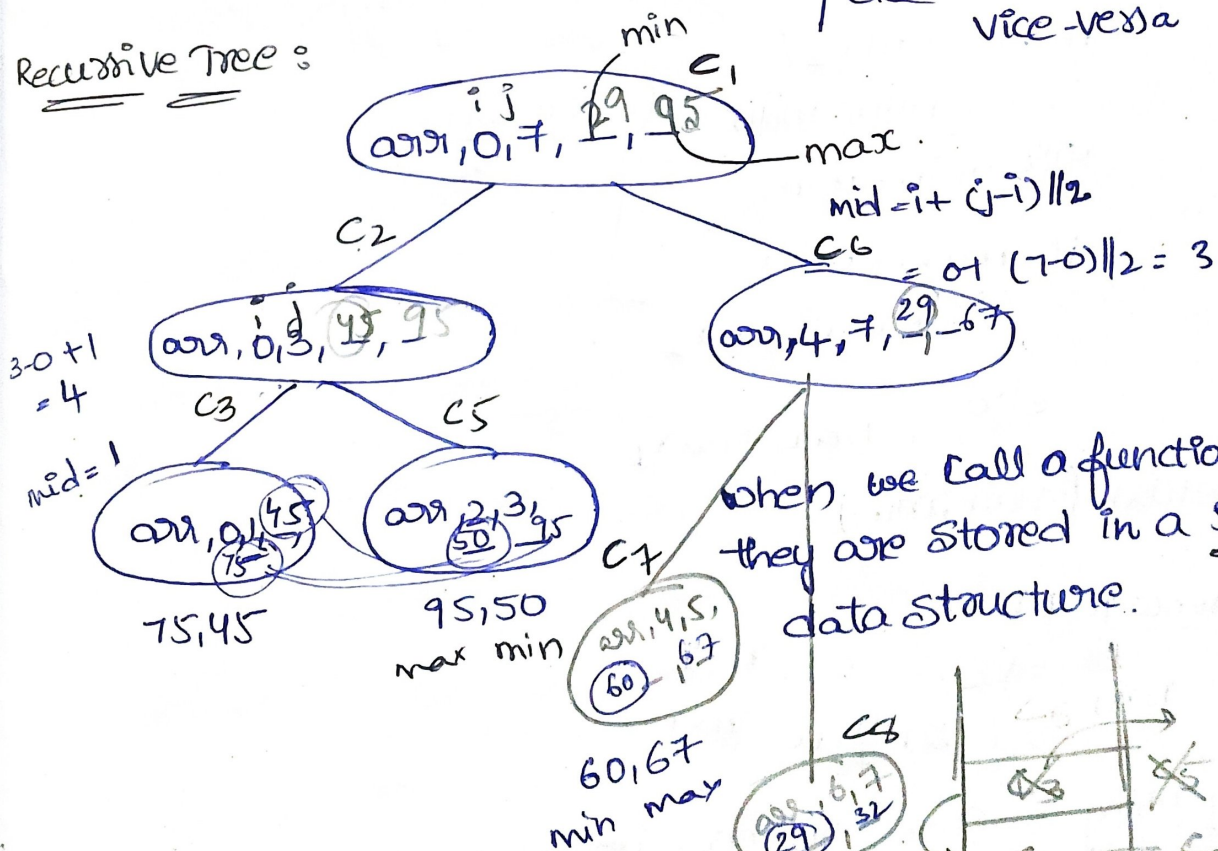 vice-versa
Recursive Tree :
min
C1
i j
arr, 0, 7, 29, 95
max.
mid = i + (j-i)//2
= 0+ (7-0)//2 = 3
C2
C6
i j
arr, 0, 3, 45, 95
arr, 4, 7, 29, 67
3-0+1
= 4
mid = 1
C3
C5
arr, 0, 1, 45,
75
arr, 2, 3,
50 95
75,45
95,50
max min
when we call a functio
they are stored in a
data structure.
C7
arr, 4, 5,
60, 67
60,67
min max
C8
arr, 6, 7
29, 32
C3
C5